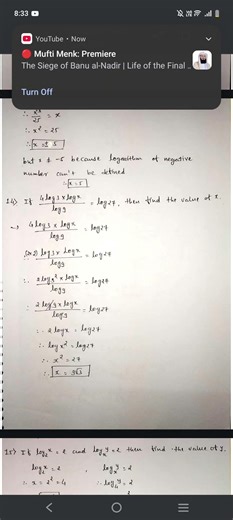 8:33
YouTube • Now
Mufti Menk: Premiere
The Siege of Banu al-Nadir | Life of the Final ..
Turn Off
x²/25 = x
∴ x² = 25
∴ x = ± 5
but x ≠ -5 because logarithm of negative
number can't be defined
∴ x = 5
14) If 4 log 3 x log x / log 9 = log 27, then find the value of x.
→ 4 log 3 x log x / log 9 = log 27
(2x2) log 3 x log x / log 9 = log 27
∴ 2 log 3² x log x / log 9 = log 27
∴ 2 log 9 x log x / log 9 = log 27
∴ 2 log x = log 27
∴ log x² = log 27
∴ x² = 27
∴ x = 3√3
15) If log x 2 = 2 and log y x 2 then find the value of
log x 2 = 2 , log y x = 2
∴ x = 2² = 4 ∴ log y 4 = 2